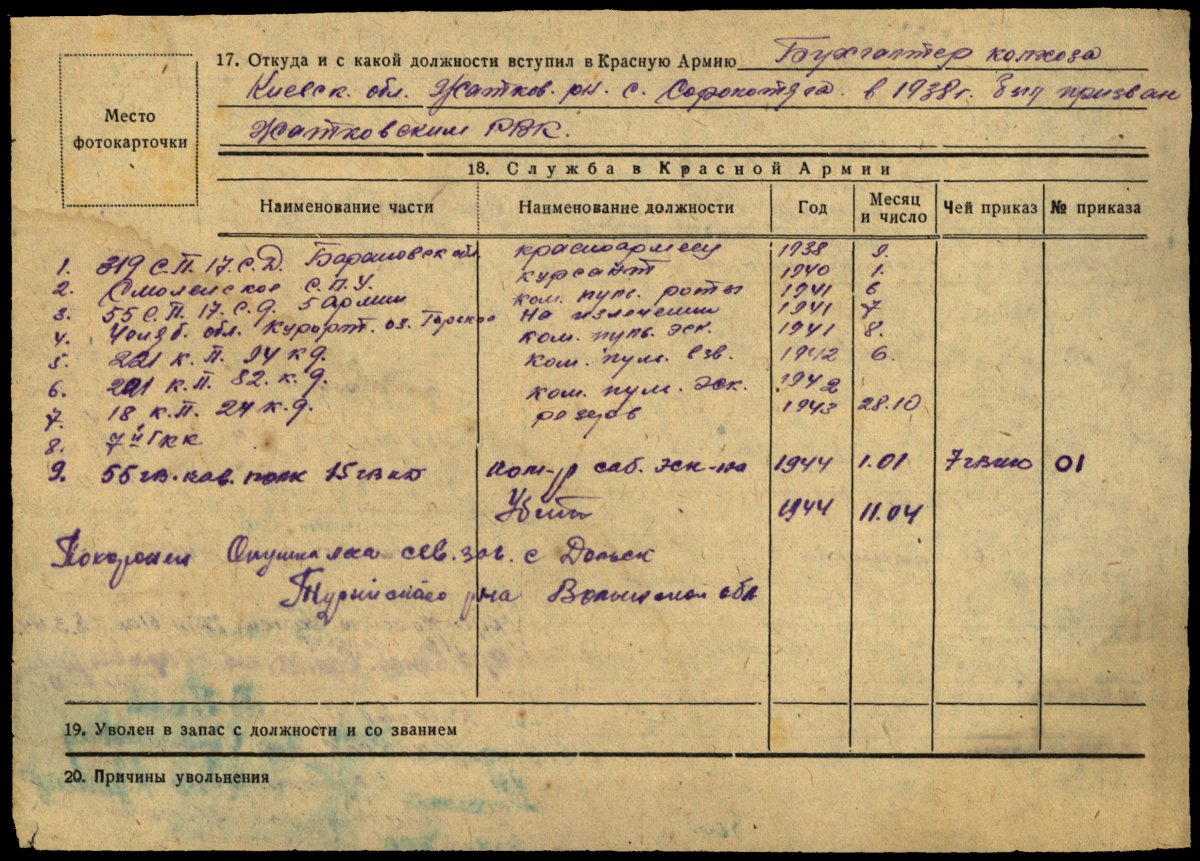 Место
фотокарточки
17. Откуда и с какой должности вступил в Красную Армию Бухгалтер колхоза
Киевск. обл. Жатков. рн. с. в 1938 г. Был призван
Жатковским РВК.
18. Служба в Красной Армии
Наименование части Наименование должности Год Месяц и число Чей приказ № приказа
1. 319 С.П. 17. С.Д. красноармеец 1938 9.
2. Смоленское С.П.У. курсант 1940 1.
3. 55 С.П. 17. С.Д. 5 Армии ком. пуль. роты 1941 6
4. обл. Курорт. оз. На излечении 1941 7
5. к.п. 94 к.д. ком. пуль. эск. 1941 8.
6. к.п. 82. к.д. ком. пул. взв. 1942 6.
7. 18 к.п. 24 к.д. ком. пул. эск. 1942
8. 7й Гкк резерв 1943 28.10
9. 55 гв. кав. полк 15 гв кд ком-р саб. эск-на 1944 1.01 7 гв кк 01
Убит 1944 11.04
Похоронен Опушка леса сев. зап. с Дольск
Турийского р-на Волынской обл
19. Уволен в запас с должности и со званием
20. Причины увольнения